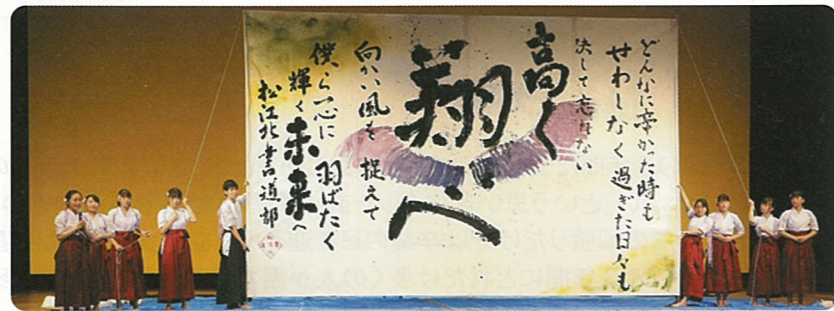 どんなに辛かった時も
せわしなく過ぎた日々も
決して忘れない
高く
翔べ
向かい風を捉えて
僕ら一心に羽ばたく
輝く未来へ
松江北書道部